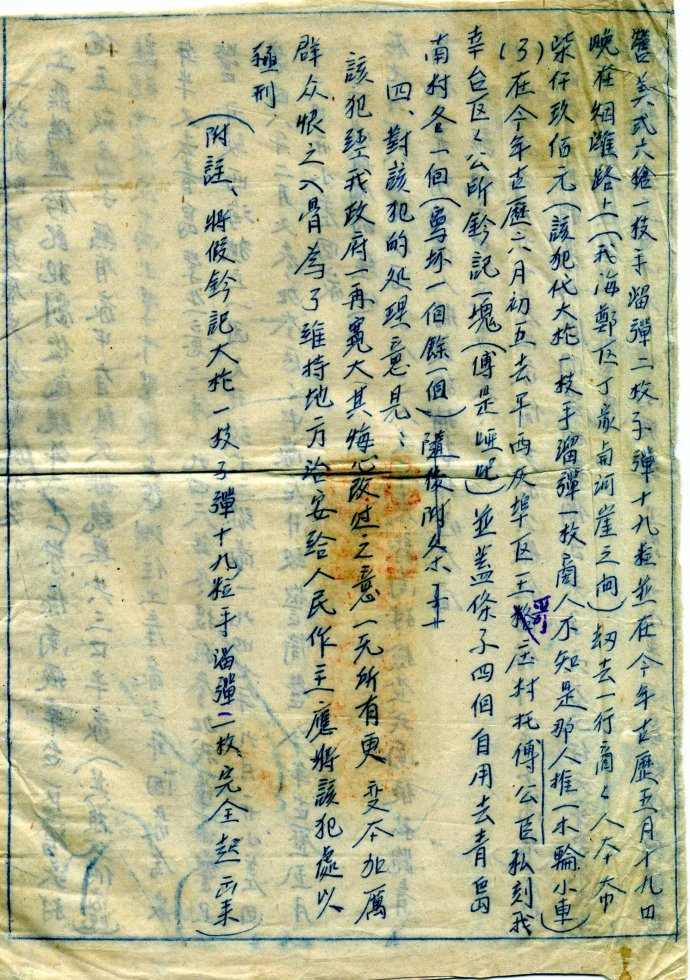 营美式大枪一枝手溜彈二枚子彈十九粒並在今年古歷五月十九日
晚在烟濰路上(我海鄭区丁家与河崖之间)劫去一行商々人本币
柴仔玖佰元(該犯代大枪一枝手溜彈一枚商人不知是那人推一木輪小車)
(3)在今年古歷六月初五去平西灰埠区王哥庄村托傅公臣私刻我
辛台区々公所鈐記一塊(傅是哑吧)並盖條子四個自用去青島
南村各一個(弄坏一個餘一個)隨後附
四、對該犯的处理意見：
該犯經我政府一再寬大其悔心改过之意一无所有更变本加厲
群众恨之入骨為了維持地方治安給人民作主應將該犯處以
極刑
(附註、將假鈐記大枪一枝子彈十九粒手溜彈二枚完全起出来)